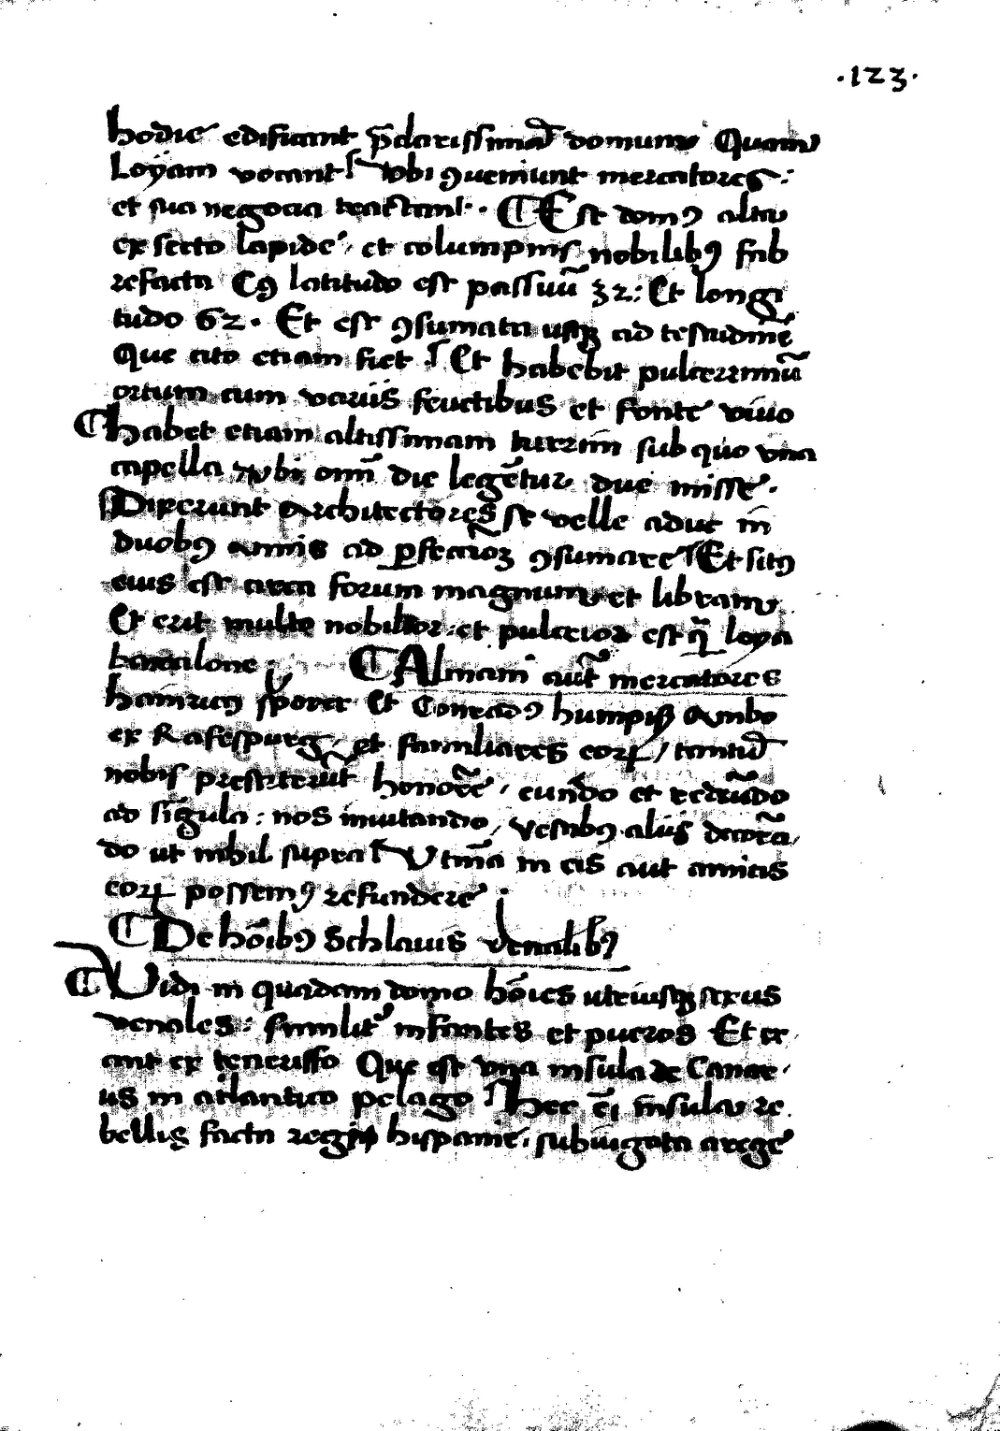 ·123·
hodie edificant p̄clarissimā domum Quam
Loyam vocant / vbi ꝯueniunt mercatores:
et sua negocia tractant·. ¶ Est domꝰ alta
ex secto lapide, et columpnis nobilibꝰ fab
refacta Cꝰ latitudo est passuū 32: Et longi
tudo 62. Et est ꝯsumata usqꝫ ad testudinē
Que cito etiam fiet / Et habebit pulcerrimū
ortum cum variis fructibus et fonte viuo
¶ habet etiam altissimam turrim sub quo vna
capella vbi omī die legētur due misse.
Dixerunt Architectores se velle aduc in
duobꝰ annis ad ꝑfectioꝫ ꝯsumare / Et sitꝰ
eius est circa forum magnum et libram
Et erit multo nobilior et pulcrior est qͣ loya
barcilone. ¶ Almani aut̄ mercatores
hainricꝰ sporer Et Conradꝰ humpiß Ambo
ex Rafespurg, et familiares eoꝝ / tantū
nobis prestiterūt honorē, eundo et redeūdo
ad singula: nos inuitando, vestibꝰ aliis decorā
do ut nihil supra / Utinā in eis aut amicis
eoꝝ possemꝰ refundere.
¶ De hoībꝰ Schlauis venalibꝰ
¶ Vidi in quadam domo hoīes utriusqꝫ sexus
venales: similitᷣ infantes et pueros Et er
ant ex teneriffo Que est vna insula de Canar
iis in atlantico pelago / Hec ēi insula re
bellis facta regi hispanie, subiugata a rege